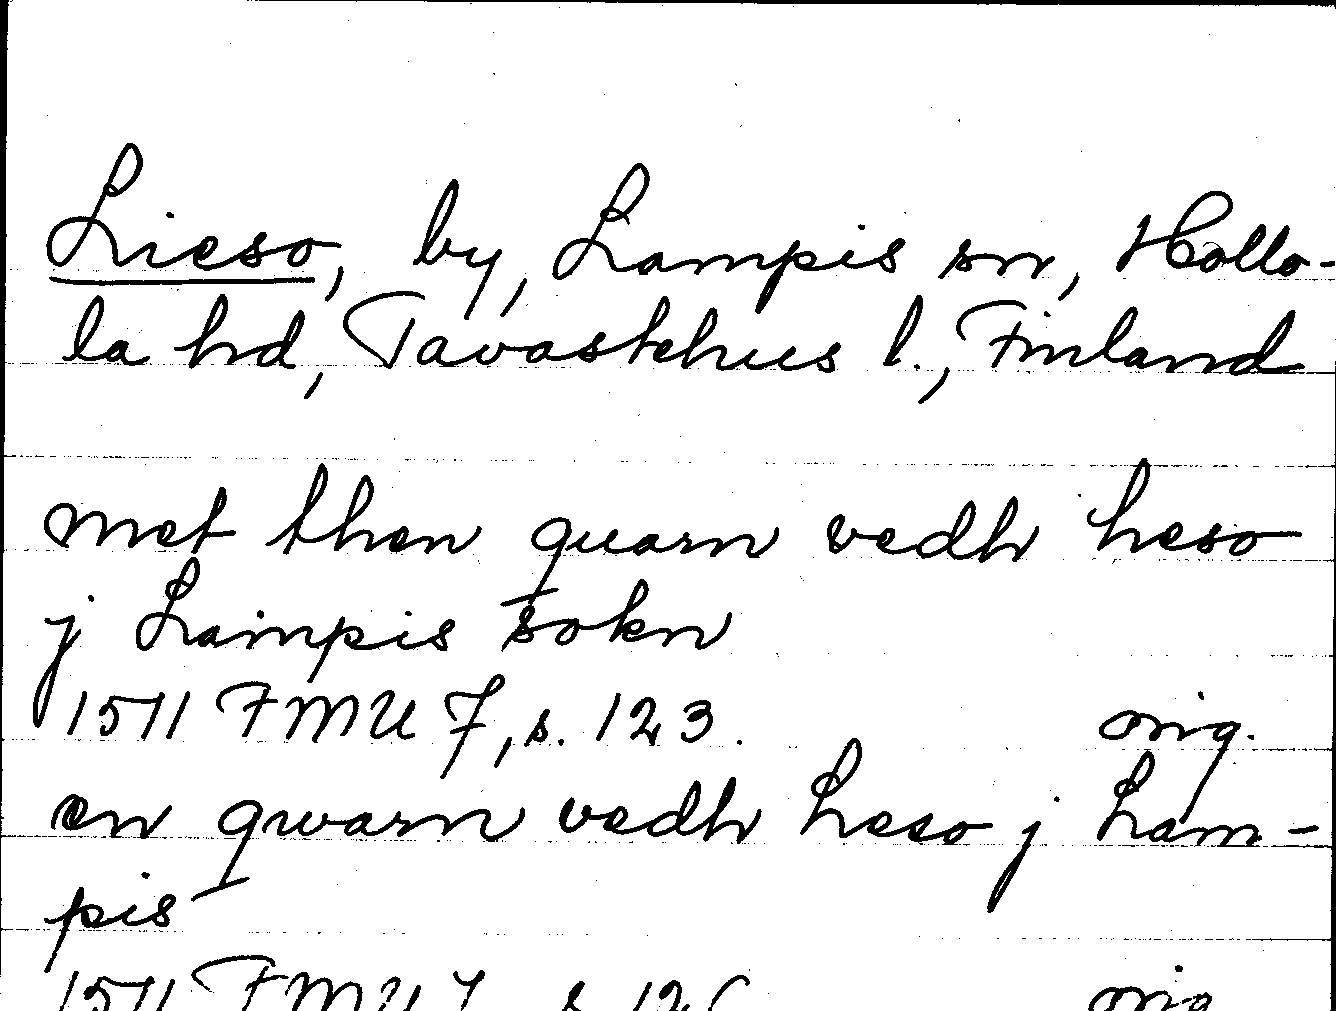 Lieso, by, Lampis sn, Hollo-
la hd, Tavastehus l., Finland
met then quarn vedh Leso
j Lampis sokn
1511 FMU 7, s. 123. orig.
en qwarn vedh Leso j Lam-
pis
1511 FMU 7 s. 126 orig